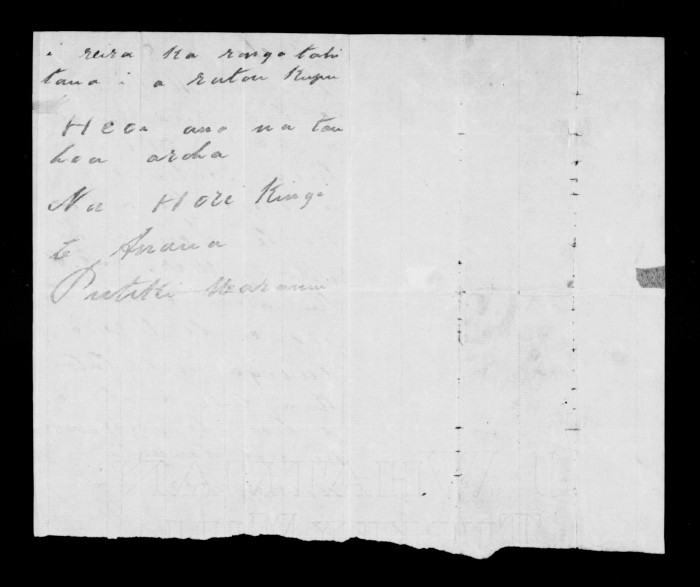 i reira ka rongo tahi
taua i a ratou Kupu
Heoi ano na tou
hoa aroha
Na Hori Kingi
te Anaua
Putiki Waranui